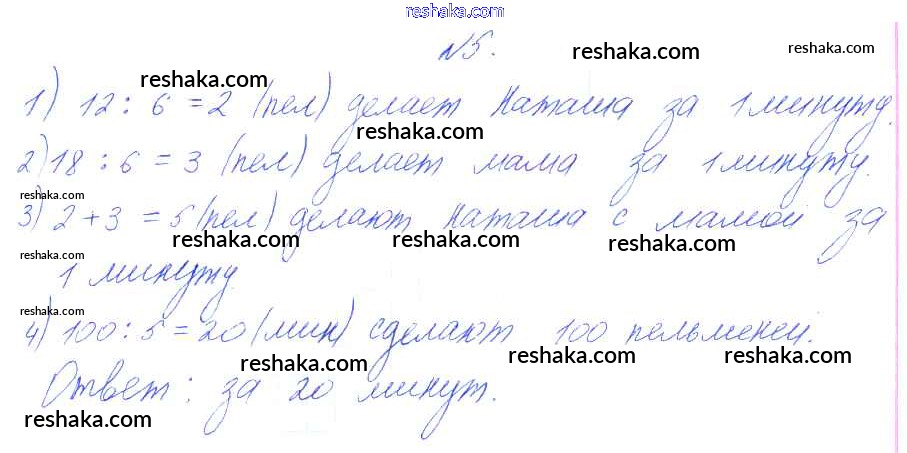 reshaka.com
№5.
reshaka.com
reshaka.com
reshaka.com
reshaka.com
1) 12 : 6 = 2 (пел) делает Наташа за 1 минуту.
reshaka.com
2) 18 : 6 = 3 (пел) делает мама за 1 минуту.
reshaka.com
3) 2 + 3 = 5 (пел) делают Наташа с мамой за
reshaka.com
reshaka.com
reshaka.com
reshaka.com
1 минуту
reshaka.com
4) 100 : 5 = 20 (мин) сделают 100 пельменей.
reshaka.com
reshaka.com
reshaka.com
Ответ: за 20 минут.
reshaka.com